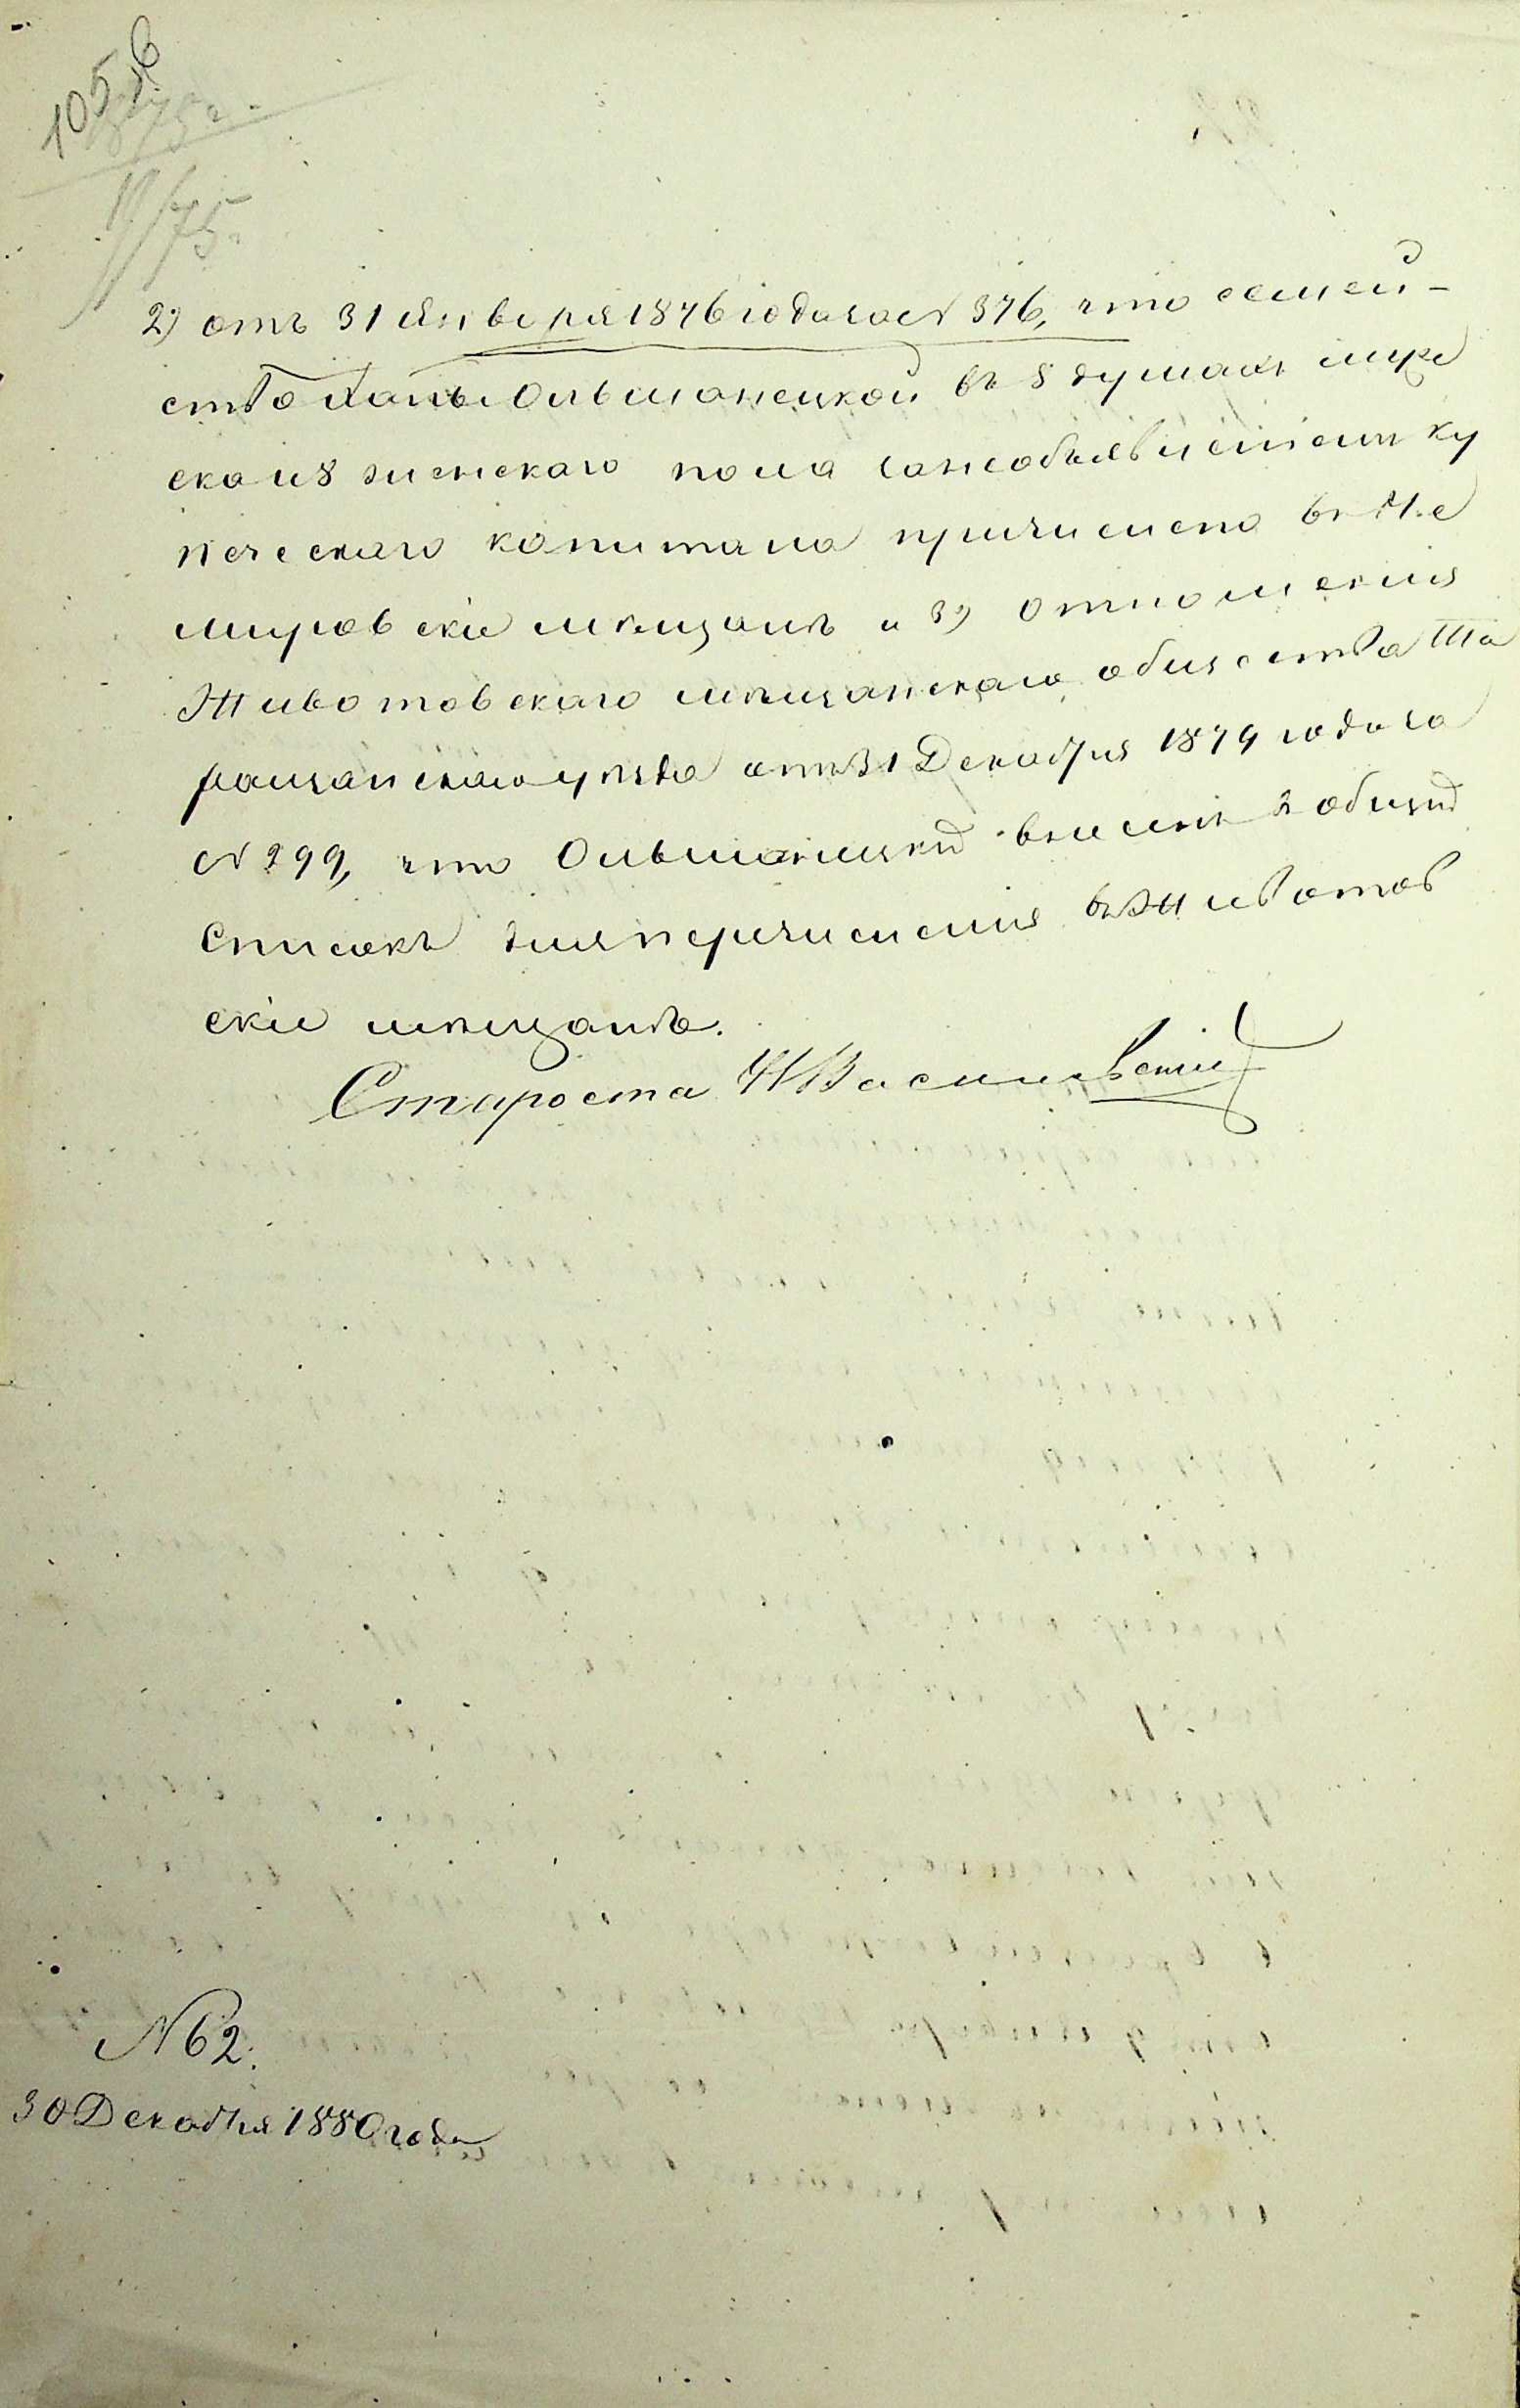 10516
1875 г.
11/75.
2) отъ 31 Января 1876 года за N 376, что семей-
ство Ханы Ольшанецкой въ 8 душахъ муже
ска и 8 женскаго пола за необъявленіемъ ку
печескаго капитала причислено въ Не
мировскіе мѣщане и 3) отношенія
Животовскаго мѣщанскаго общества Та
ращанскаго уѣзда отъ 31 Декабря 1879 года за
N 299, что Ольшанецкій внесенъ въ общій
списокъ для перечисленія въ Животов
скіе мѣщане.
Староста Василевскій
N 62.
30 Декабря 1880 года